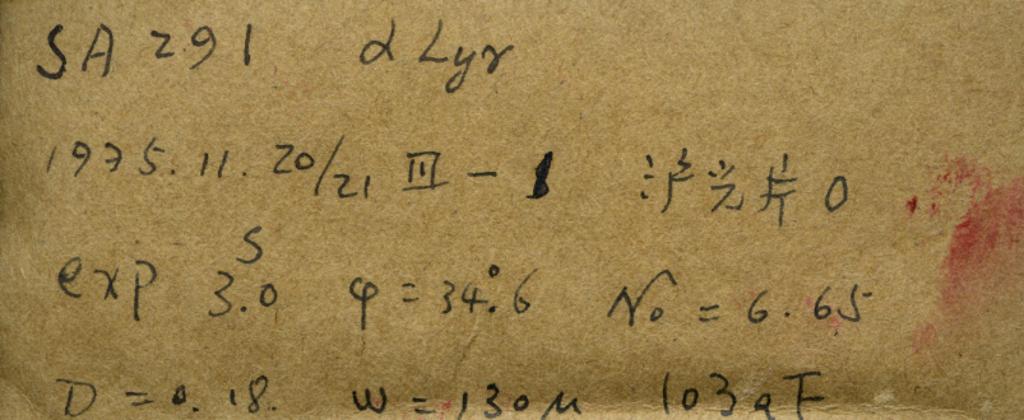 SA 291 α Lyr
1975.11.20/21 III-1 沪光片 0
exp 3.0ˢ φ=34°.6 No=6.65
D=0.18. W=130μ 103aF